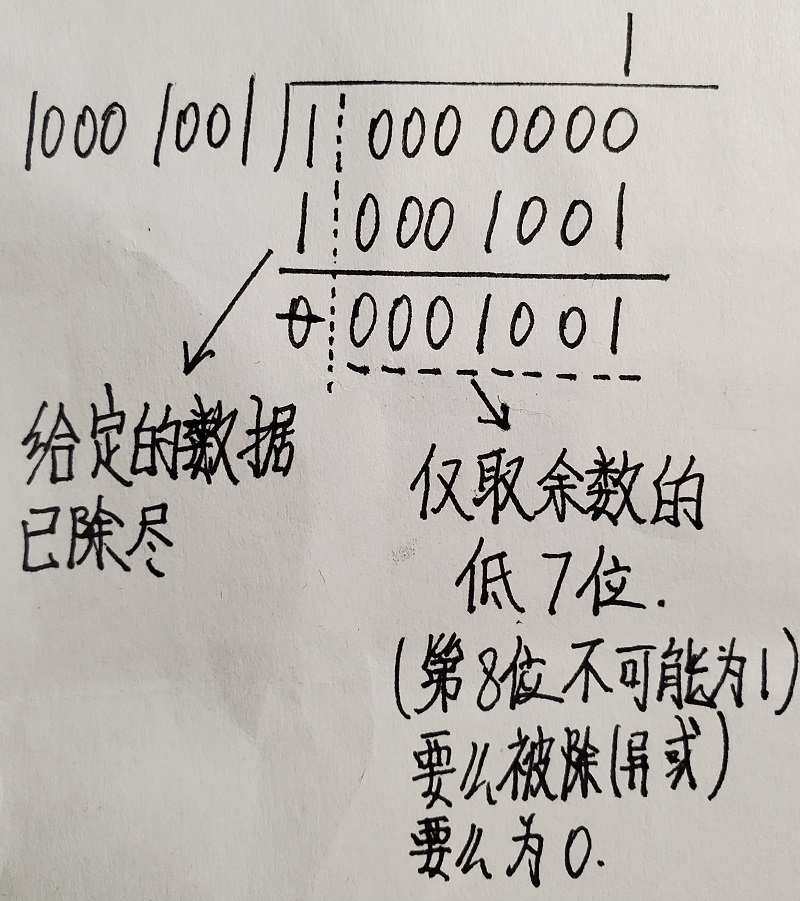 1
1000 1001 1 000 0000
1 000 1001
0 000 1001
给定的数据
已除尽
仅取余数的
低7位.
(第8位不可能为1)
要么被除(异或)
要么为0.